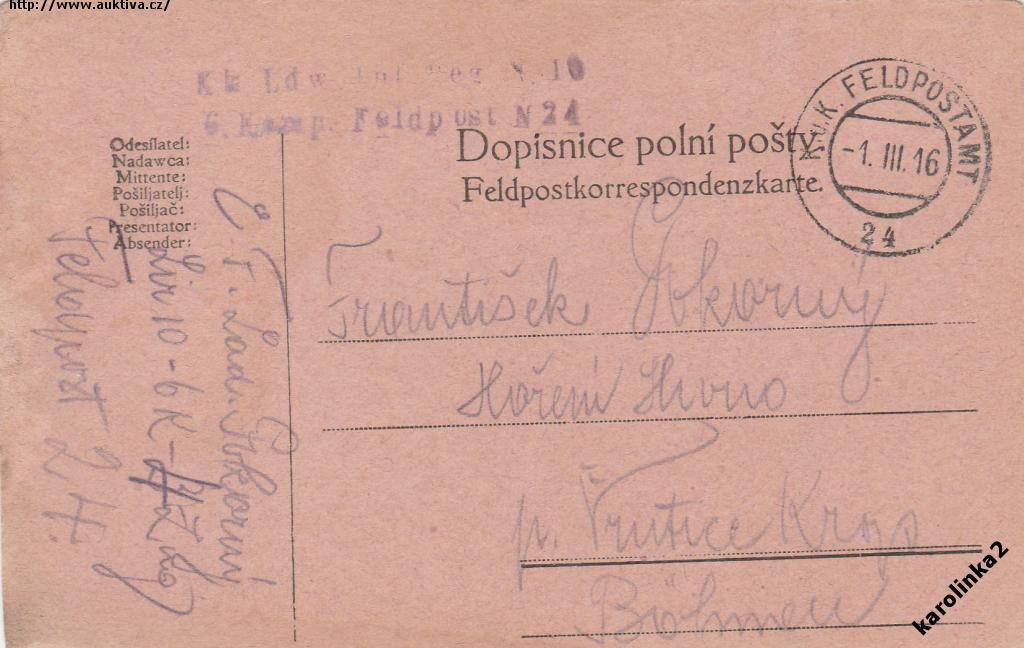 http://www.auktiva.cz/
Kk Ldw Inf Reg N.10
6. Komp. Feldpost N 24
Dopisnice polní pošty.
Feldpostkorrespondenzkarte.
K.u.K. FELDPOSTAMT
-1. III. 16
24
Odesílatel:
Nadawca:
Mittente:
Pošiljatelj:
Pošiljač:
Presentator:
Absender:
František Pokorný
Hoření
p. Krop
Böhmen
Lad. Pokorný
Lir 10 - 6 K -
Feldpost 24.
karolinka2